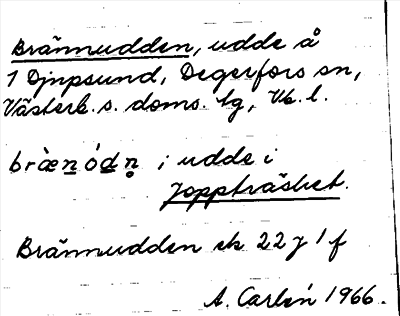 Brännudden, udde å
1 Djupsund, Degerfors sn,
Västerb. s. doms. tg, Vb. l.
bræ̀nódn̥ ; udde i
Joppträsket.
Brännudden ek 22 J 1 f
A. Carlén 1966.